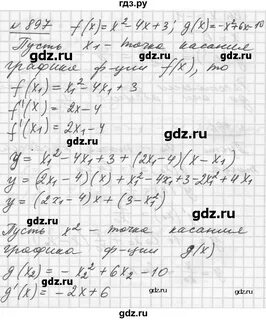 № 897 f(x)=x²-4x+3; g(x)=-x²+6x-10
Пусть x₁ - точка касания
графика ф-ции f(x), то
f(x₁) = x₁² - 4x₁ + 3
f'(x) = 2x - 4
f'(x₁) = 2x₁ - 4
y = x₁² - 4x₁ + 3 + (2x₁ - 4)(x - x₁)
y = (2x₁ - 4)(x) + x₁² - 4x₁ + 3 - 2x₁² + 4x₁
y = (2x₁ - 4)x + (3 - x₁²)
Пусть x² - точка касания
графика ф-ции g(x)
g(x₂) = - x₂² + 6x₂ - 10
g'(x) = - 2x + 6
gdz.ru
gdz.ru
gdz.ru
gdz.ru
gdz.ru
gdz.ru
gdz.ru